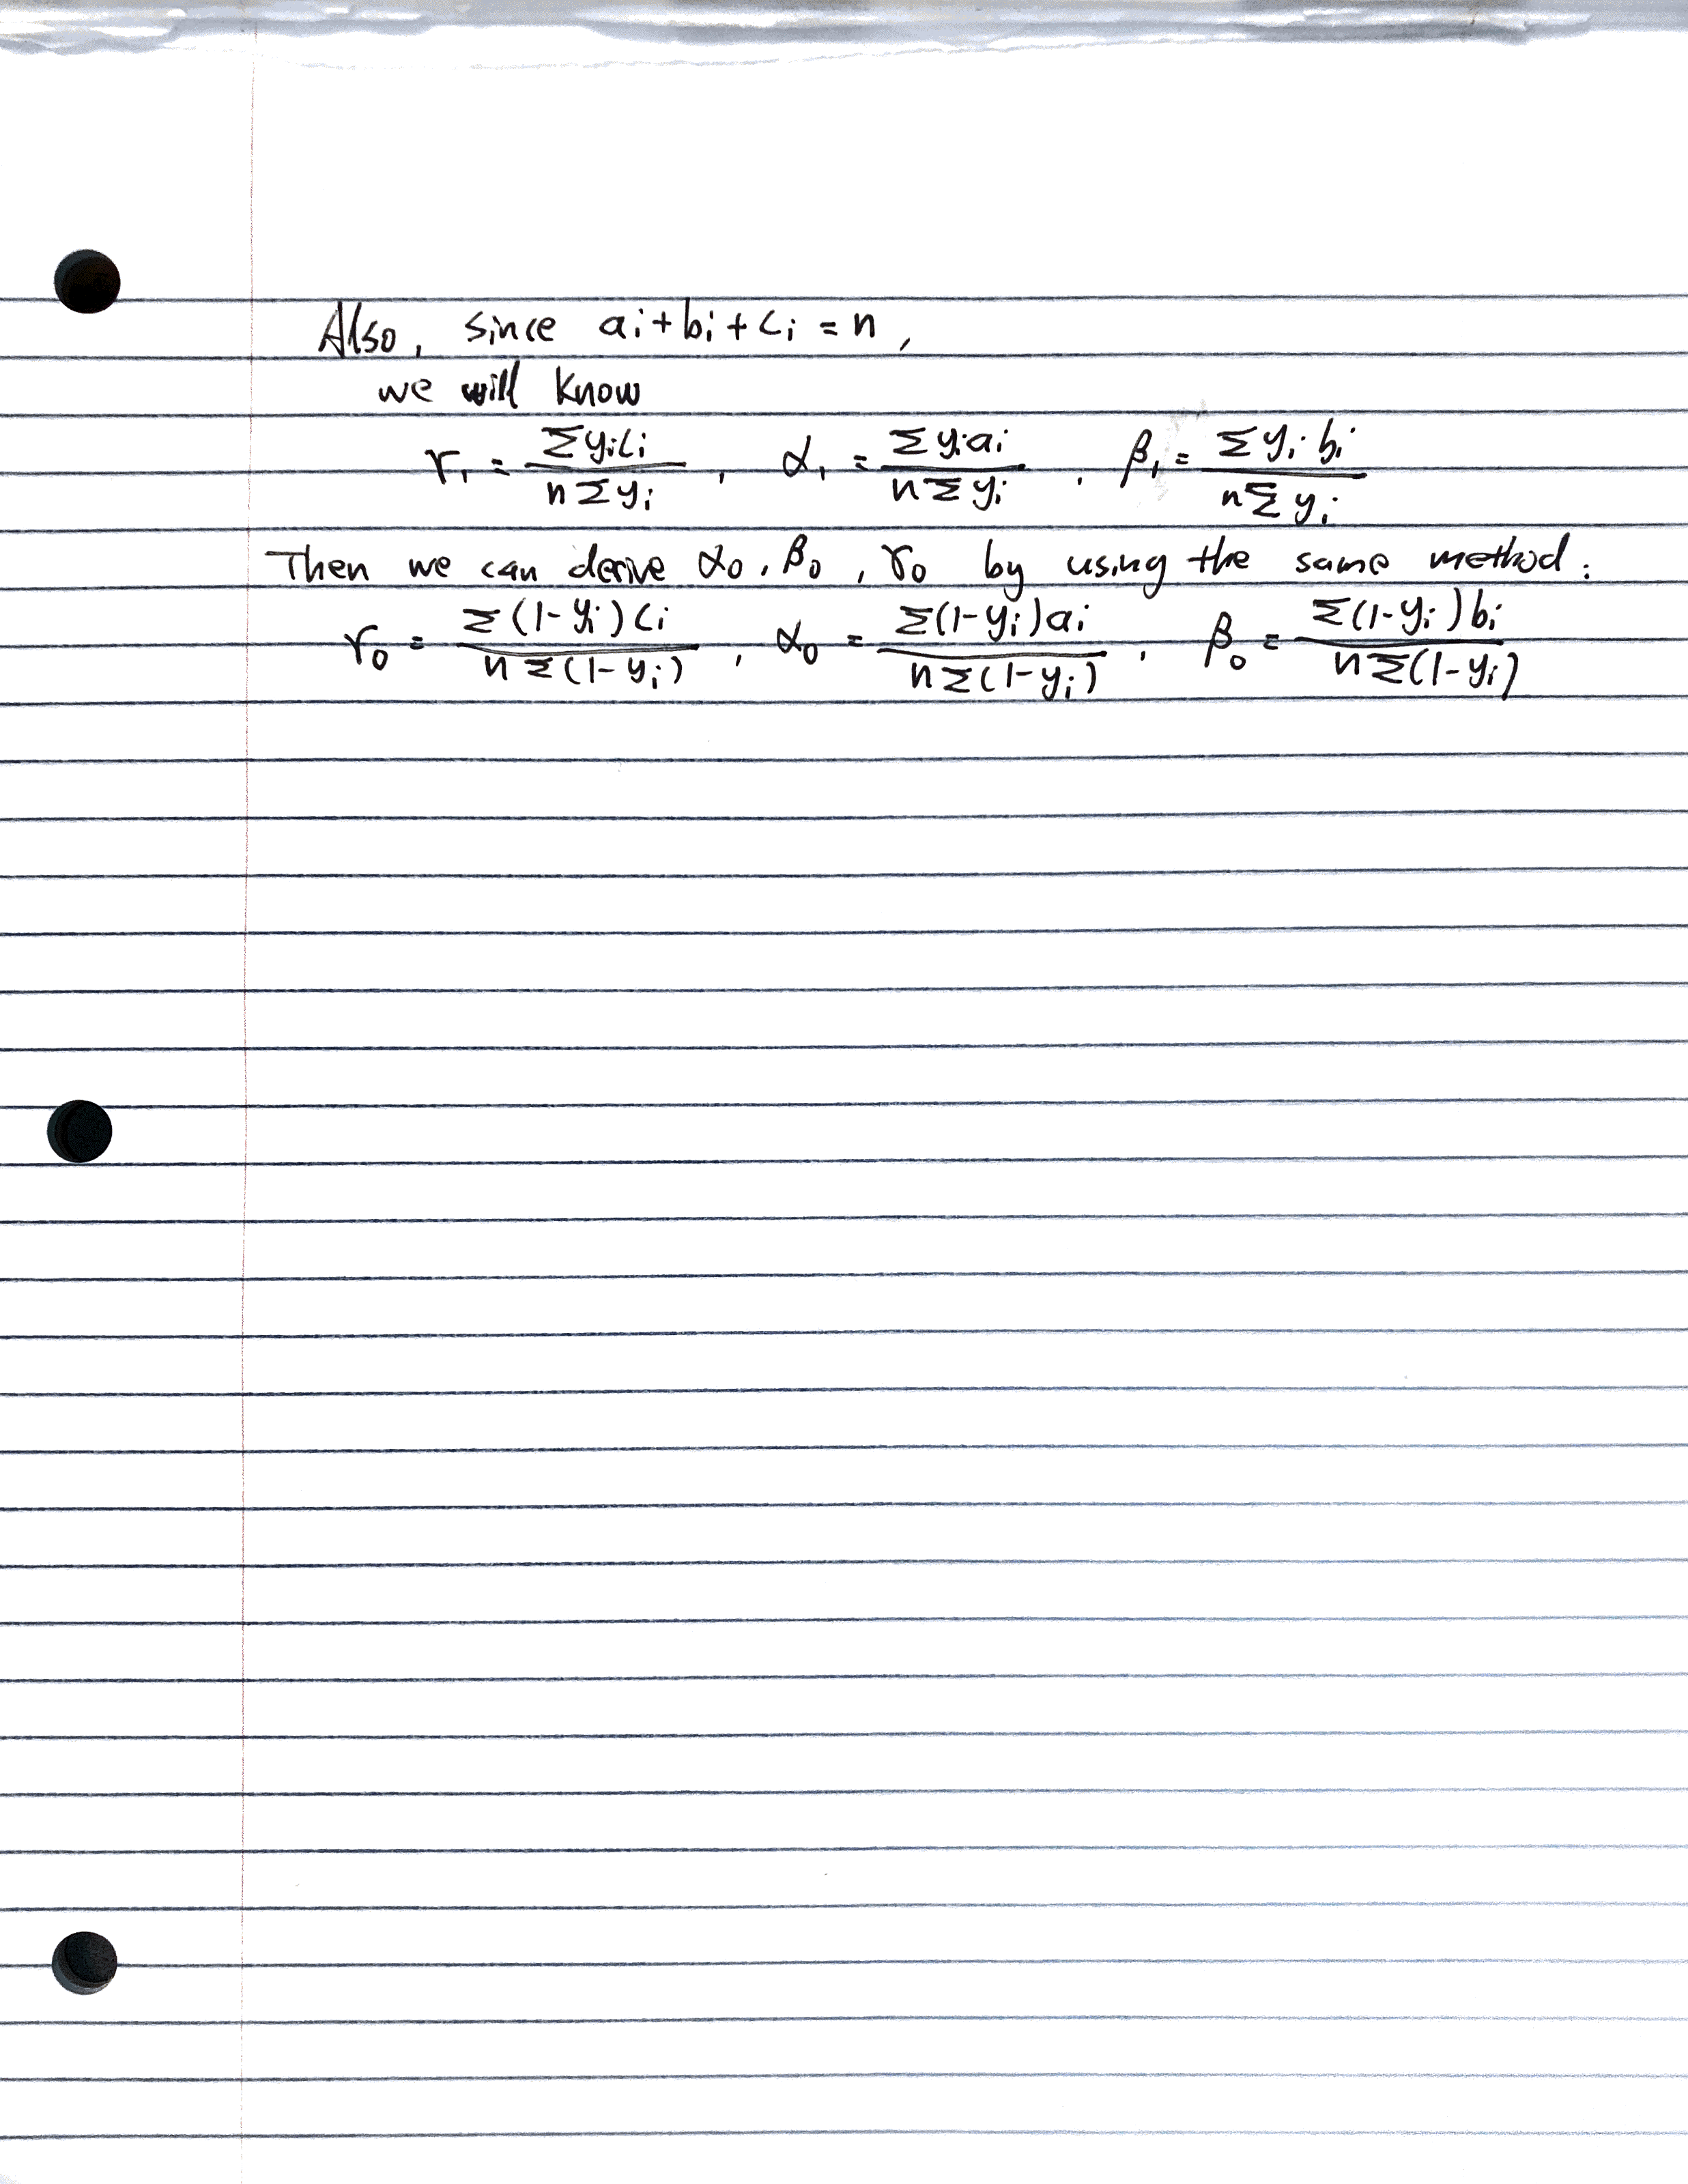 Also, since aᵢ + bᵢ + cᵢ = n,
we will know
γ₁ = Σyᵢcᵢ / nΣyᵢ , α₁ = Σyᵢaᵢ / nΣyᵢ , β₁ = Σyᵢbᵢ / nΣyᵢ
Then we can derive α₀, β₀, γ₀ by using the same method:
γ₀ = Σ(1-yᵢ)cᵢ / nΣ(1-yᵢ) , α₀ = Σ(1-yᵢ)aᵢ / nΣ(1-yᵢ) , β₀ = Σ(1-yᵢ)bᵢ / nΣ(1-yᵢ)